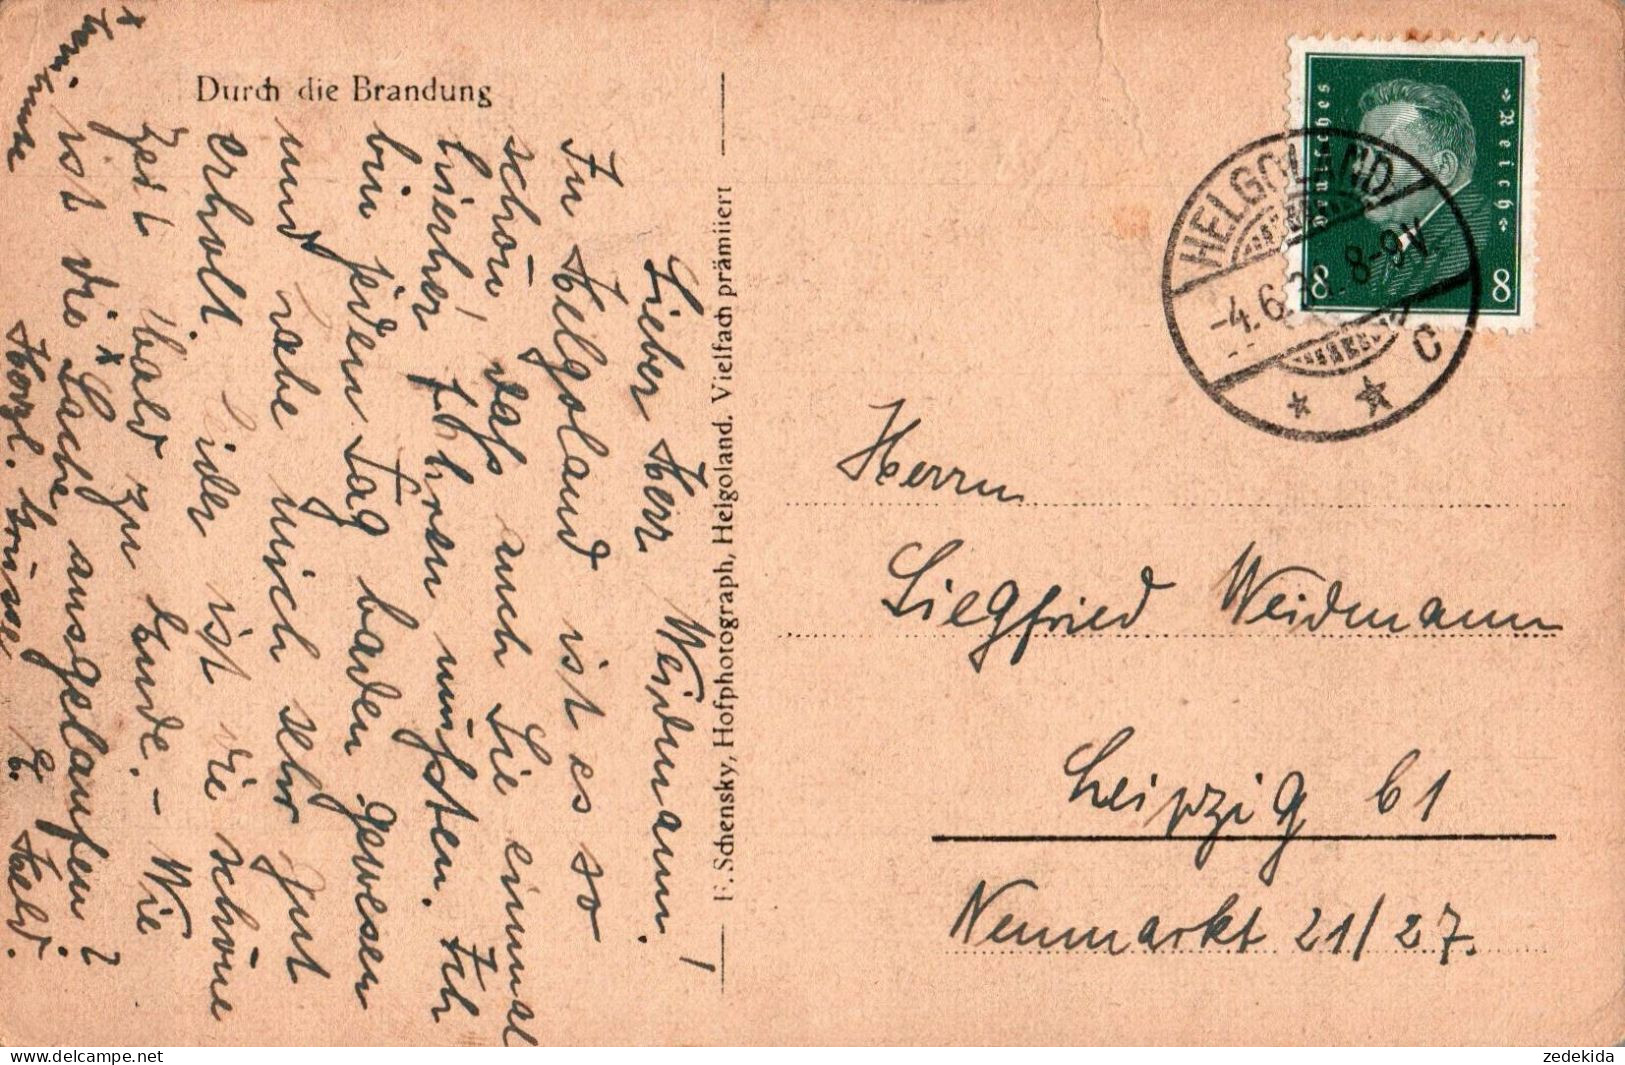 Durch die Brandung
Lieber Herr Weidmann!
In Helgoland ist es so
schön, dass auch Sie einmal
hierher fahren müssten. Ich
bin jeden Tag baden gewesen
und habe mich sehr gut
erholt, leider ist die schöne
Zeit bald zu Ende. – Wie
ist die Sache ausgelaufen?
Herzl. Grüsse
Held.
F. Schensky, Hofphotograph, Helgoland. Vielfach prämiiert
Deutsches Reich
8 8
HELGOLAND
-4.6.28. 8-9V.
* * C
Herrn
Siegfried Weidmann
Leipzig C1
Neumarkt 21/27.
zedekida